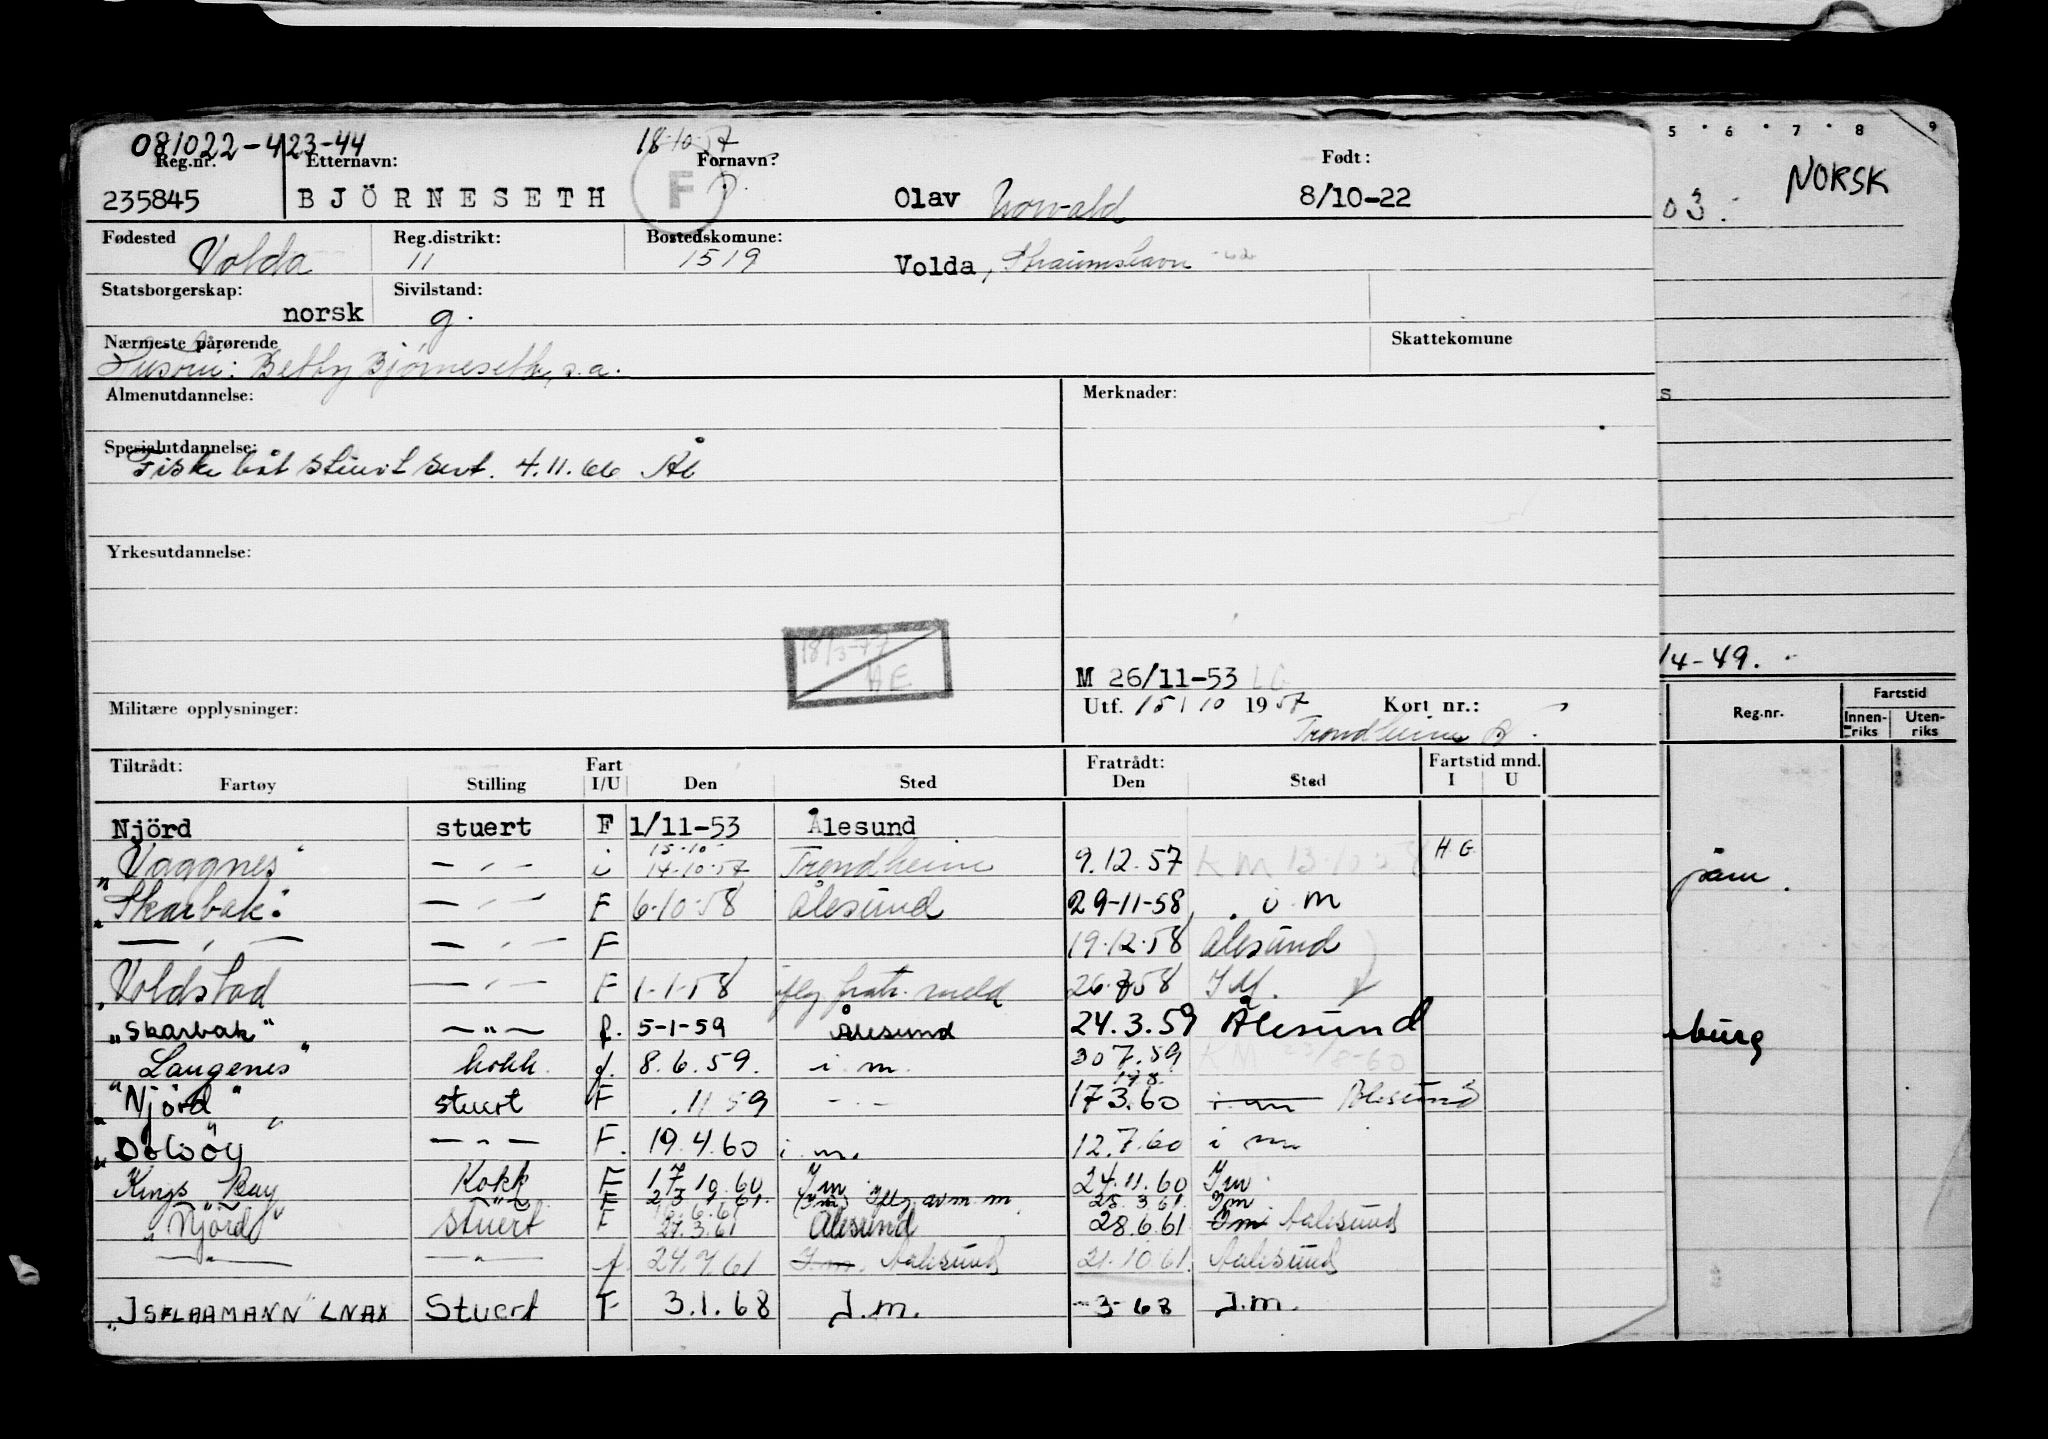 081022-423-44 18-10-57
Reg.nr. Etternavn: Fornavn: Født:
235845 BJÖRNESETH F Olav 8/10-22
Fødested Volda Reg.distrikt: 11 Bostedskomune: 1519 Volda,
Statsborgerskap: norsk Sivilstand: g.
Nærmeste pårørende Skattekomune
Betty Bjørneseth, s.a.
Almenutdannelse: Merknader:
Spesialutdannelse:
Fiske båt stuert sert. 4.11.66 Ål
Yrkesutdannelse:
18/3-77
AE
M 26/11-53 LG
Militære opplysninger: Utf. 15/10 1957 Kort nr.:
Trondheim
Tiltrådt: Fart Fratrådt: Fartstid mnd.
Fartøy Stilling I/U Den Sted Den Sted I U
Njörd stuert F 1/11-53 Ålesund
15.10
"Vaggnes" — " — i 14.10.57 Trondheim 9.12.57 KM 13.10.58 H G
"Skarbak" — " — F 6.10.58 Ålesund 29-11-58 i m
— " — — " — F 19.12.58 Ålesund
Voldstad — " — F 1-1-58 iflg fratr. meld 26.8.58 I M.
"Skarbak" — " — f. 5-1-59 Ålesund 24.3.59 Ålesund
Langenes" kokk f. 8.6.59. i m. 30 7.59 KM 23/8-60
"Njörd" stuert F .11 59 - " - 17 3.60 i m Ålesund
— " — F. 19.4.60 i m. 12.7.60 i m
Kings Bay Kokk F 17 10.60 I m 24.11.60 I m
F 25.3.61. I m
"Njörd" stuert F 27.3.61 Ålesund 28.6.61 I m Aalesund
— " — — " — f. 24.7.61 I m. Aalesund 21.10.61. Aalesund
"ISFLAAMANN" LNAX Stuert F 3.1.68 I.m. -3-68 I.m.
5 6 7 8 9
NORSK
03.
s
14-49.
Reg.nr. Fartstid
Innen-riks Uten-riks
burg